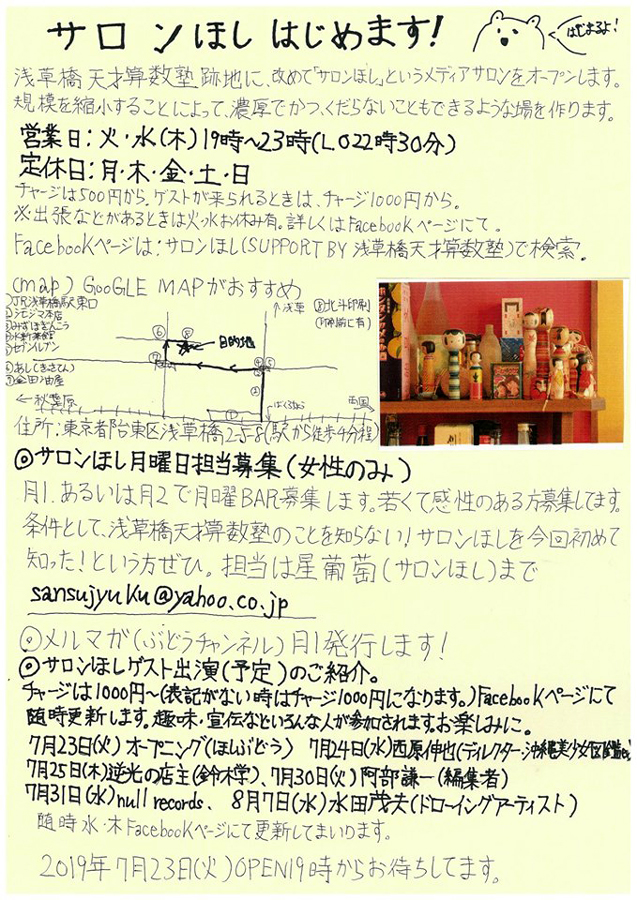 サロンほし はじめます!
はじまるよ!
浅草橋天才算数塾跡地に、改めて「サロンほし」というメディアサロンをオープンします。
規模を縮小することによって、濃厚でかつくだらないこともできるような場を作ります。
営業日:火・水(木)19時〜23時(L.O22時30分)
定休日:月・木・金・土・日
チャージは500円から。ゲストが来られるときは、チャージ1000円から。
※出張などがあるときは火・水お休み有。詳しくはFacebookページにて。
Facebookページは:サロンほし(SUPPORT BY 浅草橋天才算数塾)で検索。
(map) GooGLE MAPがおすすめ
①JR浅草橋駅東口
②シモジマ本店
③みずほぎんこう
⑤セブンイレブン
⑦金田油店
↑浅草
⑧北斗印刷
目的地
←秋葉原
両国
住所:東京都台東区浅草橋2-5-8(駅から徒歩4分程)
◎サロンほし月曜日担当募集(女性のみ)
月1.あるいは月2で月曜BAR募集します。若くて感性のある方募集してます。
条件として、浅草橋天才算数塾のことを知らない!サロンほしを今回初めて
知った!という方ぜひ。担当は星葡萄(サロンほし)まで
sansujyuku@yahoo.co.jp
◎メルマガ(ぶどうチャンネル)月1発行します!
◎サロンほしゲスト出演(予定)のご紹介。
チャージは1000円〜(表記がない時はチャージ1000円になります。)Facebookページにて
随時更新します。趣味・宣伝などいろんな人が参加されます。お楽しみに。
7月23日(火)オープニング(ほしぶどう) 7月24日(水)西原伸也(ディレクター・沖縄美少女図鑑etc)
7月25日(木)逆光の店主(鈴木学)、7月30日(火)阿部謙一(編集者)
7月31日(水)null records、8月7日(水)水田茂夫(ドローイングアーティスト)
随時水・木Facebookページにて更新してまいります。
2019年7月23日(火)OPEN19時からお待ちしてます。